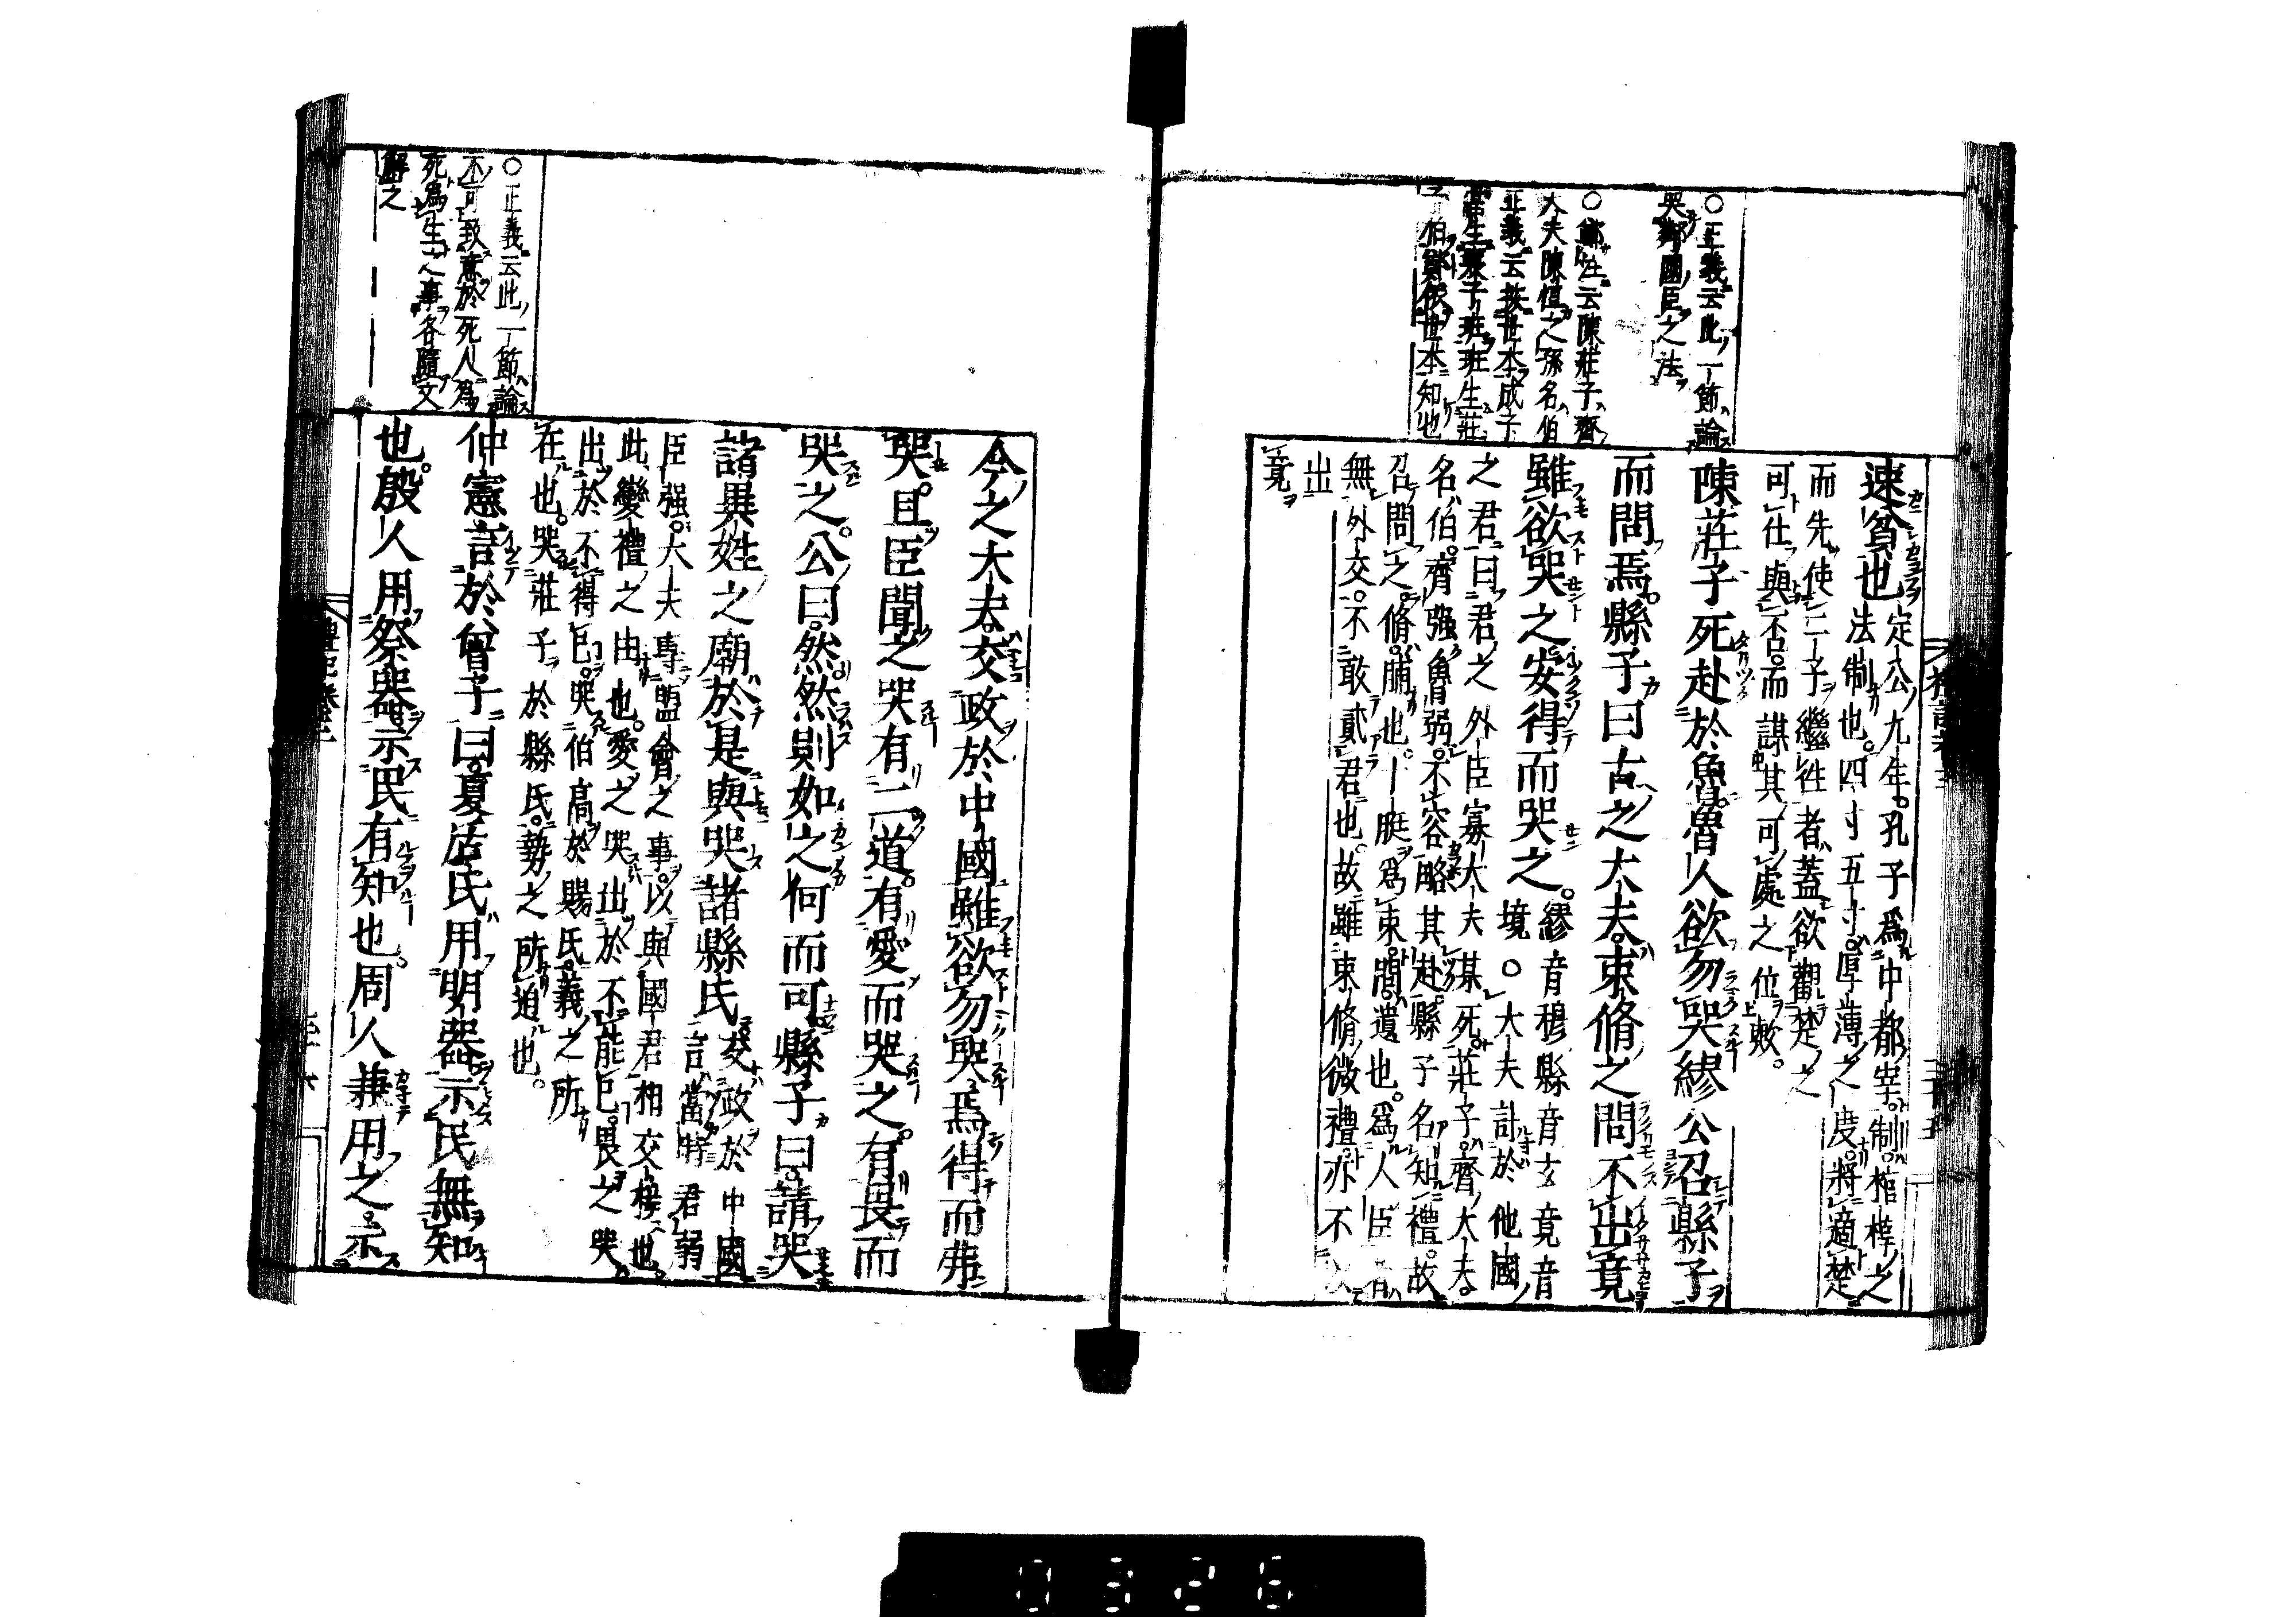 ○正義云此一節論
哭鄰國臣之法
○鄭注云陳莊子齊
大夫陳恒之孫名伯
正義云按世本成子
常生襄子班班生莊
子伯鄭依世本知也
速貧也定公九年。孔子爲中都宰。制棺椁之
法制也。四寸五寸。厚薄之度。將適楚
而先使二子繼往者。蓋欲觀楚之
可仕與否。而謀其可處之位歟。
陳莊子死赴於魯。魯人欲勿哭繆公召縣子
而問焉。縣子曰古之大夫。束脩之問不出竟
雖欲哭之安得而哭之。繆音穆縣音玄竟音
境。○大夫訃於他國
之君曰君之外臣寡大夫某死。莊子。齊大夫。
名伯。齊强魯弱。不容略其赴。縣子名知禮。故
召問之。脩。脯也。十脡爲束。問。遺也。爲人臣者
無外交。不敢貳君也。故雖束脩微禮。亦不以
出
竟
今之大夫。交政於中國雖欲勿哭。焉得而弗
哭。且臣聞之哭有二道。有愛而哭之。有畏而
哭之。公曰。然。然則如之何而可。縣子曰。請哭
諸異姓之廟。於是與哭諸縣氏。交政於中國
言當時君弱
臣强。大夫專盟會之事。以與國君相交接也。
此變禮之由也。愛之哭出於不能已。畏之哭
出於不得已。哭伯高於賜氏。義之所
在也。哭莊子於縣氏。勢之所迫也。
○正義云此一節論
不可致意於死人爲
死爲生之事各隨文
解之
仲憲言於曾子曰。夏后氏用明器。示民無知
也。殷人用祭器。示民有知也。周人兼用之。示
禮記卷三
0326